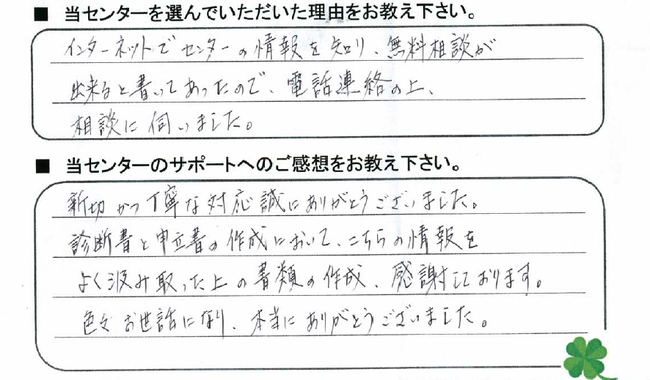 ■ 当センターを選んでいただいた理由をお教え下さい。
インターネットでセンターの情報を知り、無料相談が
出来ると書いてあったので、電話連絡の上、
相談に伺いました。
■ 当センターのサポートへのご感想をお教え下さい。
親切かつ丁寧な対応誠にありがとうございました。
診断書と申立書の作成において、こちらの情報を
よく汲み取った上の書類の作成、感謝しております。
色々お世話になり、本当にありがとうございました。